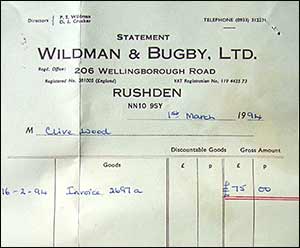 Directors P. E. Wildman
D. J. Crocker
TELEPHONE (0933)
STATEMENT
WILDMAN & BUGBY, LTD.
Regd. Office: 206 WELLINGBOROUGH ROAD
Registered No. 381005 (England) VAT Registration No. 119 4425 73
RUSHDEN
NN10 9SY
1st March 1994
M Clive Wood
Discountable Goods Gross Amount
Goods £ p £ p
16-2-94 Invoice 2697a £75 00